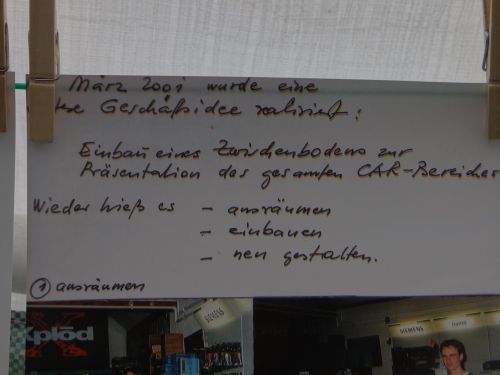 März 2001 wurde eine
Geschäftsidee realisiert:
Einbau eines Zwischenbodens zur
Präsentation des gesamten CAR-Bereiches
Wieder hieß es - ausräumen
- einbauen
- neu gestalten.
1 ausräumen
xplōd
SIEMENS
SIEMENS